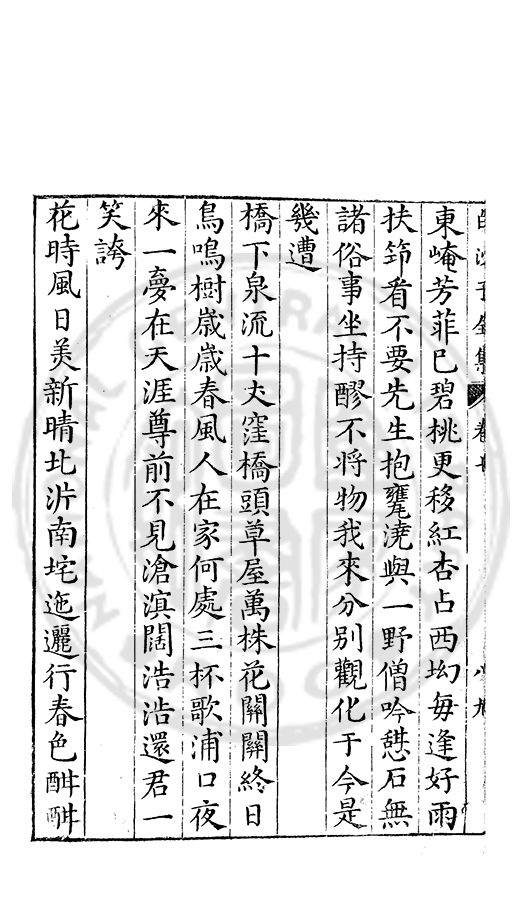 東崦芳菲巳碧桃更移紅杏占西坳毎逢好雨
扶筇看不要先生抱甕澆與一野僧吟憇石無
諸俗事坐持醪不將物我來分别觀化于今是
幾遭
橋下泉流十丈窪橋頭草屋萬株花關關終日
鳥鳴樹歲歲春風人在家何處三杯歌浦口夜
來一夢在天涯尊前不見滄溟闊浩浩還君一
笑誇
花時風日美新晴北沜南垞迤邐行春色酣酣